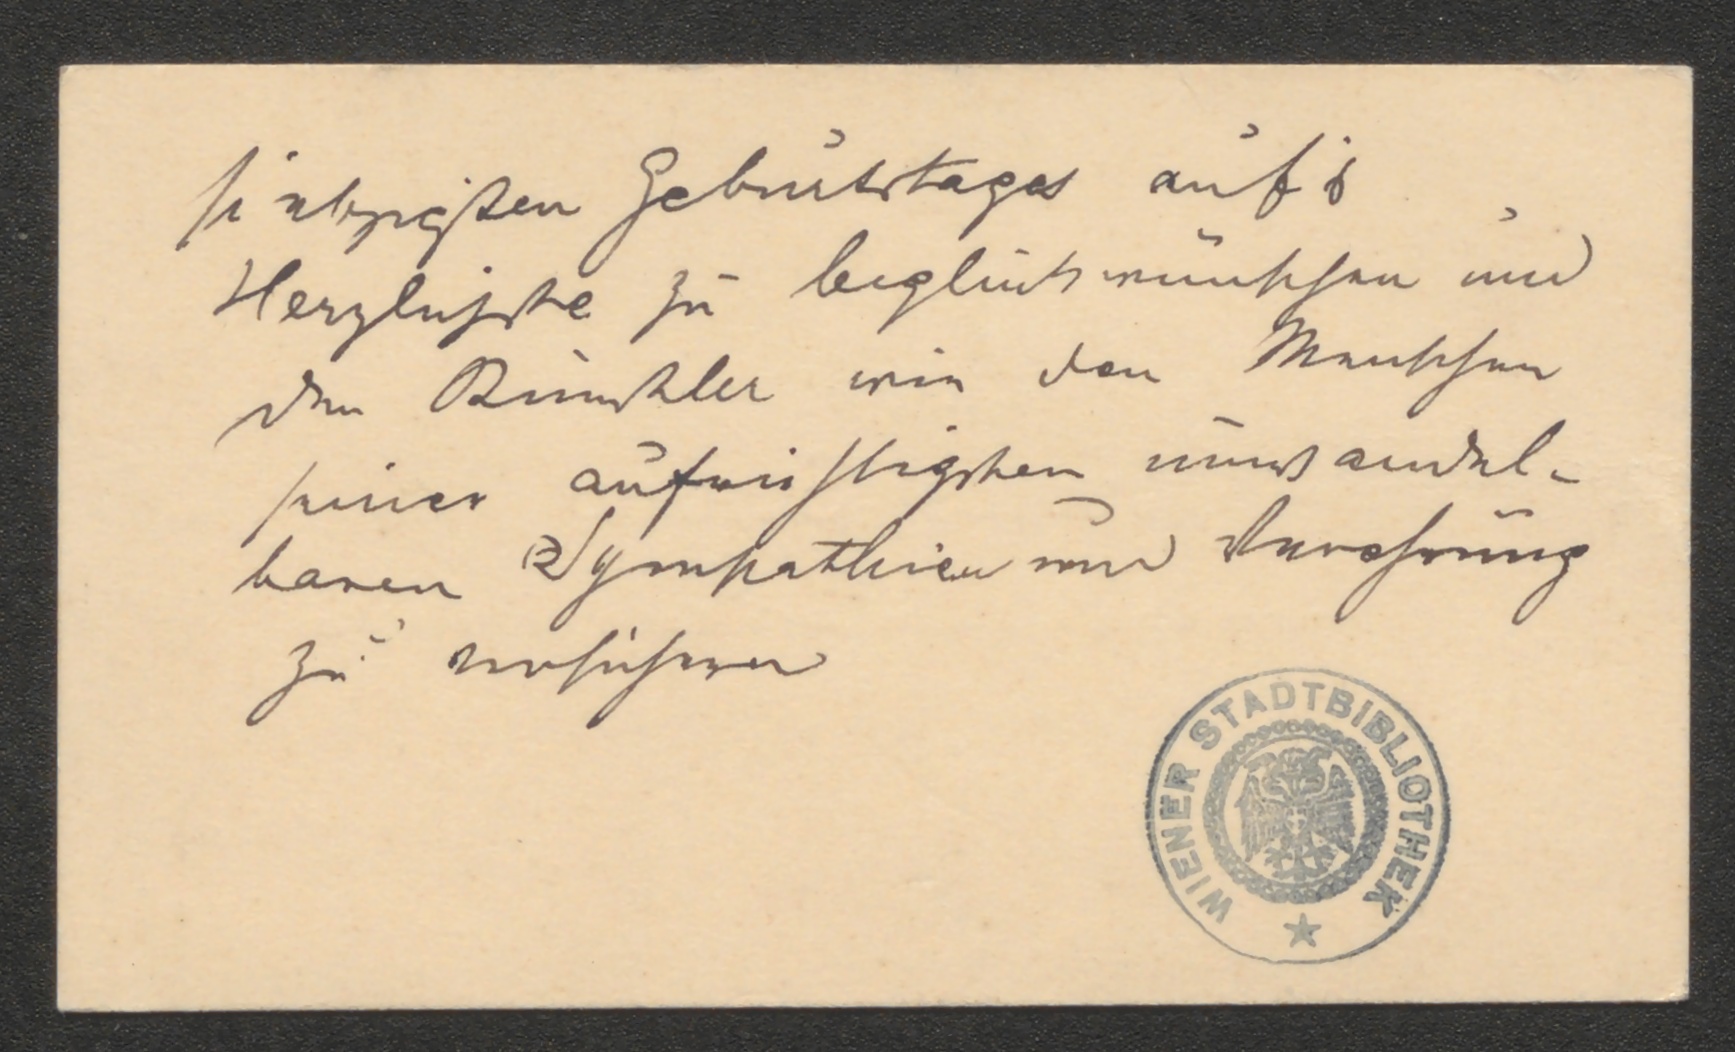 siebzigsten Geburtstages auf's
Herzlichste zu beglückwünschen und
den Künstler wie den Menschen
seiner aufrichtigsten unwandel-
baren Sympathien und Verehrung
zu versichern
WIENER STADTBIBLIOTHEK